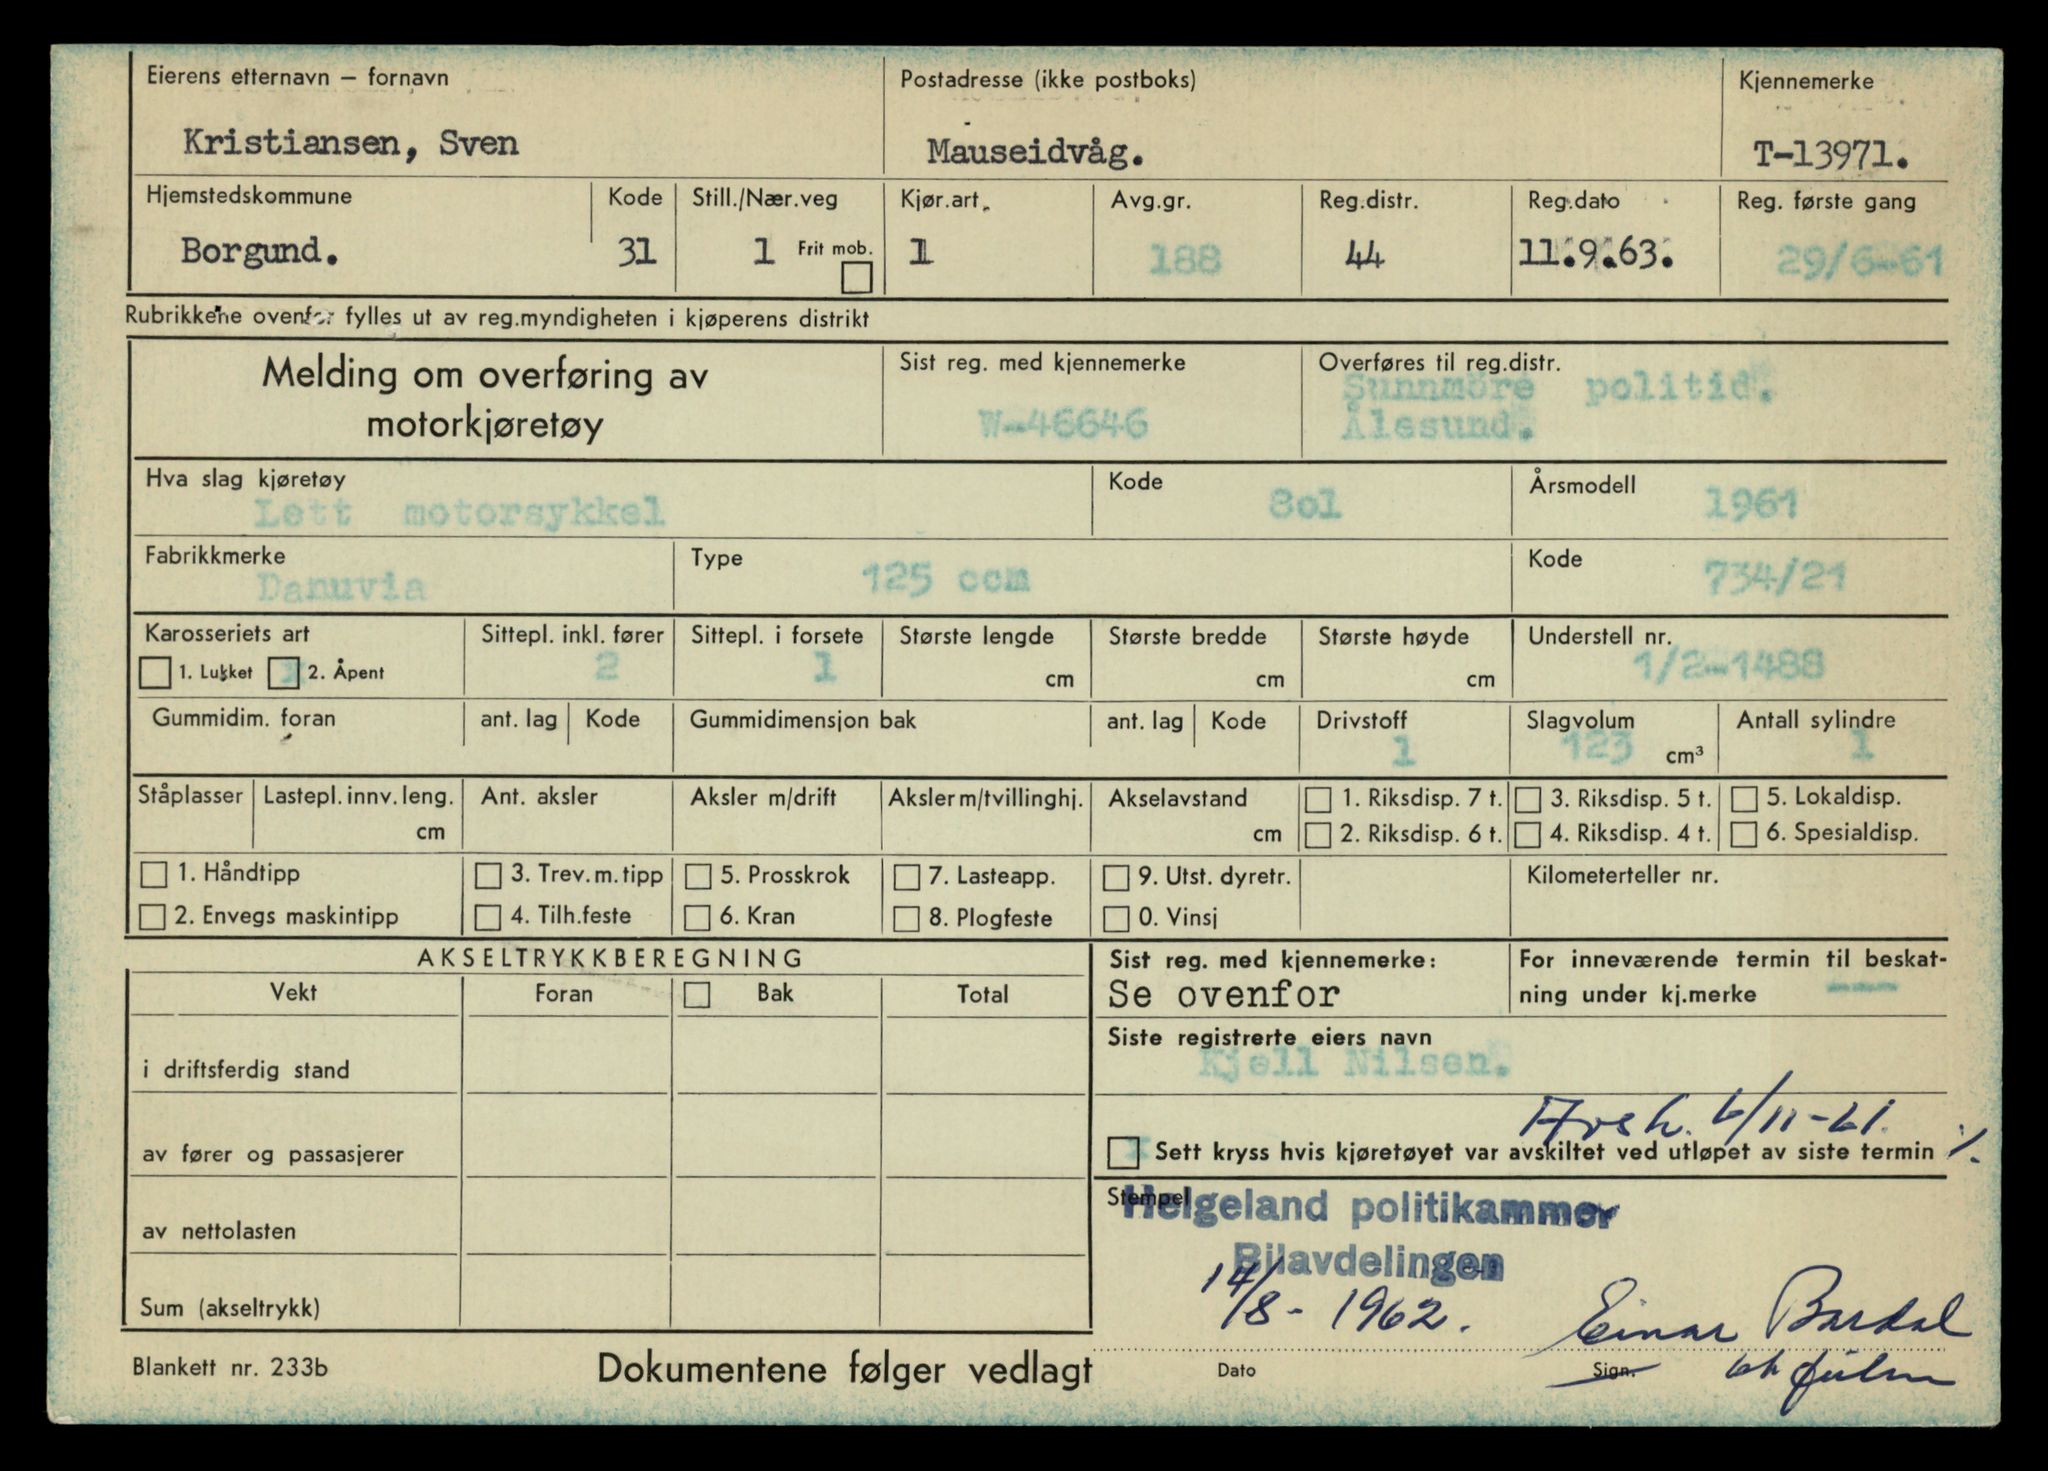 Eierens etternavn – fornavn Postadresse (ikke postboks) Kjennemerke
Kristiansen, Sven Mauseidvåg. T-13971.
Hjemstedskommune Kode Still./Nær.veg Kjør.art. Avg.gr. Reg.distr. Reg.dato Reg. første gang
Borgund. 31 1 Frit mob. 1 188 44 11.9.63. 29/6-61
Rubrikkene ovenfor fylles ut av reg.myndigheten i kjøperens distrikt
Melding om overføring av Sist reg. med kjennemerke Overføres til reg.distr.
motorkjøretøy W-46646 Sunnmöre politid.
Ålesund.
Hva slag kjøretøy Kode Årsmodell
Lett motorsykkel 8o1 1961
Fabrikkmerke Type Kode
Danuvia 125 ccm 734/21
Karosseriets art Sittepl. inkl. fører Sittepl. i forsete Største lengde Største bredde Største høyde Understell nr.
1. Lukket x 2. Åpent 2 1 cm cm cm 1/2-1488
Gummidim. foran ant. lag Kode Gummidimensjon bak ant. lag Kode Drivstoff Slagvolum Antall sylindre
1 123 cm³ 1
Ståplasser Lastepl. innv. leng. Ant. aksler Aksler m/drift Aksler m/tvillinghj. Akselavstand 1. Riksdisp. 7 t. 3. Riksdisp. 5 t. 5. Lokaldisp.
cm cm 2. Riksdisp. 6 t. 4. Riksdisp. 4 t. 6. Spesialdisp.
1. Håndtipp 3. Trev. m. tipp 5. Prosskrok 7. Lasteapp. 9. Utst. dyretr. Kilometerteller nr.
2. Envegs maskintipp 4. Tilh.feste 6. Kran 8. Plogfeste 0. Vinsj
AKSELTRYKKBEREGNING Sist reg. med kjennemerke: For inneværende termin til beskat-
Vekt Foran Bak Total Se ovenfor ning under kj.merke ---
Siste registrerte eiers navn
i driftsferdig stand Kjell Nilsen.
6/11-61.
av fører og passasjerer Sett kryss hvis kjøretøyet var avskiltet ved utløpet av siste termin
Stempel
Helgeland politikammer
av nettolasten
Bilavdelingen
Sum (akseltrykk) 14/8-1962. Einar Bardal
Blankett nr. 233b Dokumentene følger vedlagt Dato Sign.